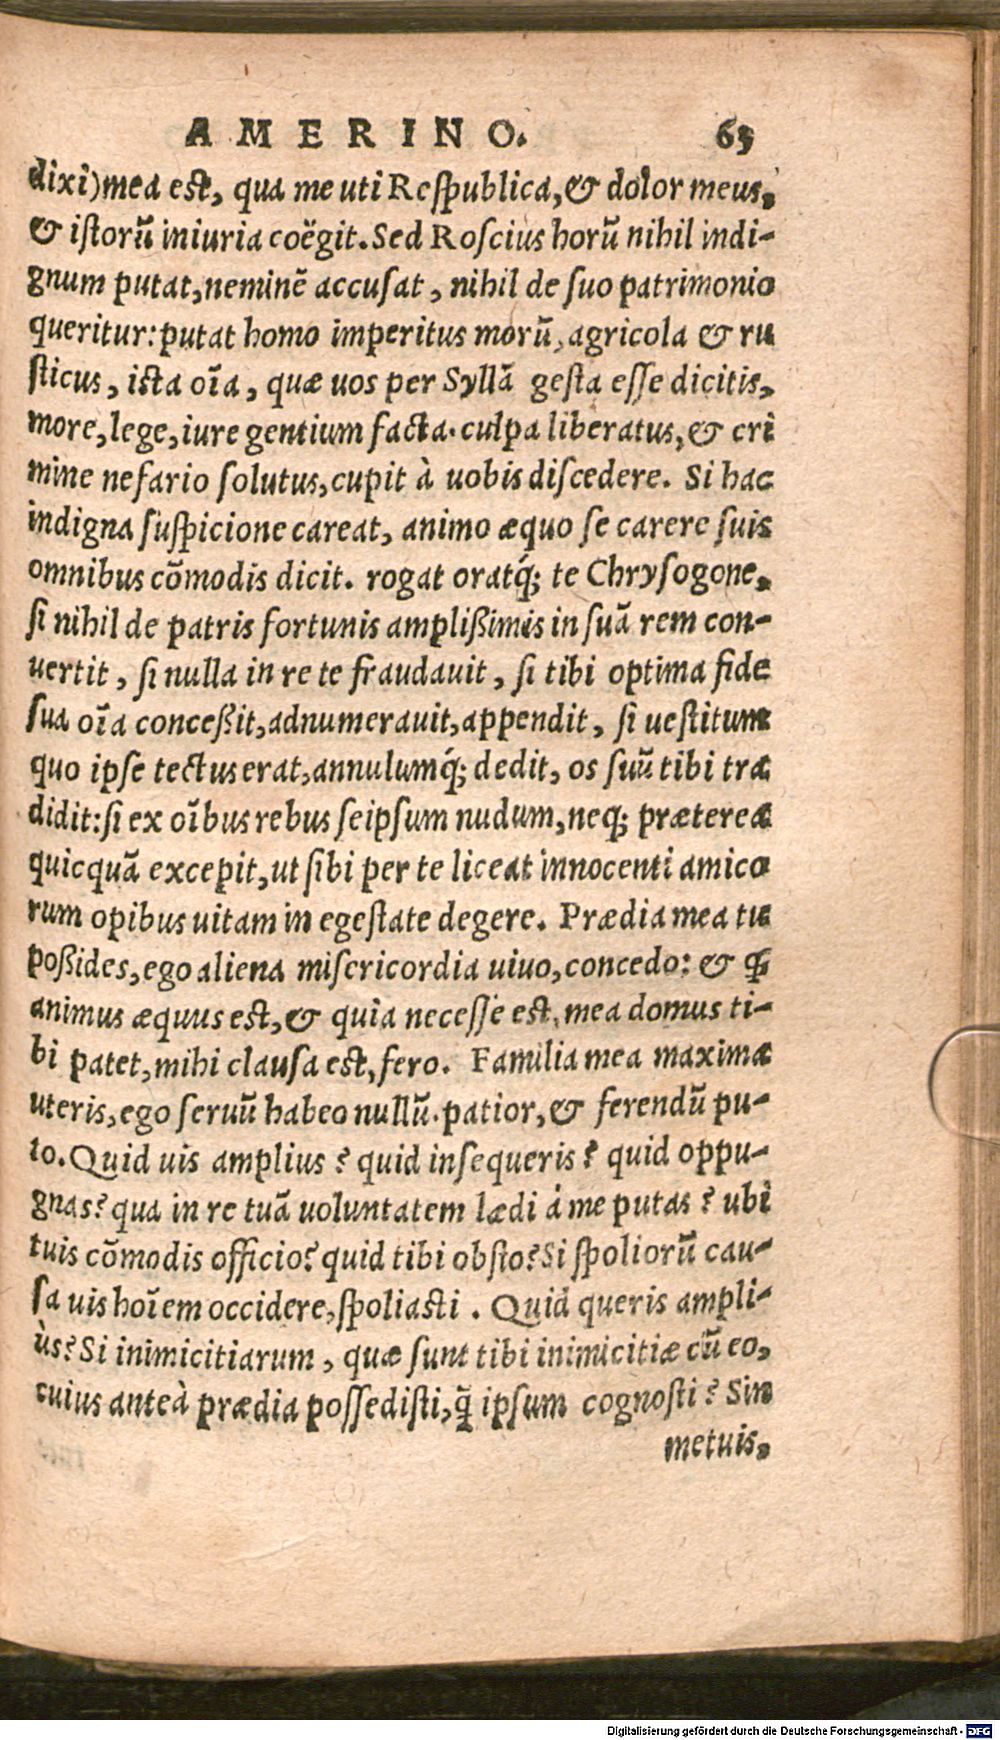 AMERINO. 65
dixi) mea est, qua me uti Respublica, & dolor meus,
& istorũ iniuria coëgit. Sed Roscius horũ nihil indi-
gnum putat, neminẽ accusat, nihil de suo patrimonio
queritur: putat homo imperitus morũ, agricola & ru
sticus, ista oĩa, quæ uos per Syllã gesta esse dicitis,
more, lege, iure gentium facta. culpa liberatus, & cri
mine nefario solutus, cupit à uobis discedere. Si hac
indigna suspicione careat, animo æquo se carere suis
omnibus cõmodis dicit. rogat oratq́; te Chrysogone,
si nihil de patris fortunis amplißimis in suã rem con-
uertit, si nulla in re te fraudauit, si tibi optima fide
sua oĩa conceßit, adnumerauit, appendit, si uestitum
quo ipse tectus erat, annulumq́; dedit, os suũ tibi tra
didit: si ex oĩbus rebus seipsum nudum, neq; præterea
quicquã excepit, ut sibi per te liceat innocenti amico
rum opibus uitam in egestate degere. Prædia mea tu
poßides, ego aliena misericordia uiuo, concedo: & ꝙ
animus æquus est, & quia necesse est. mea domus ti-
bi patet, mihi clausa est, fero. Familia mea maxima
uteris, ego seruũ habeo nullũ. patior, & ferendũ pu-
to. Quid uis amplius? quid insequeris? quid oppu-
gnas? qua in re tuã uoluntatem lædi á me putas? ubi
tuis cõmodis officio? quid tibi obsto? Si spoliorũ cau-
sa uis hoĩem occidere, spoliasti. Quid queris ampli-
ùs? Si inimicitiarum, quæ sunt tibi inimicitiæ cũ eo,
cuius anteà prædia possedisti, q̃ ipsum cognosti? Sin
metuis,
Digitalisierung gefördert durch die Deutsche Forschungsgemeinschaft - DFG